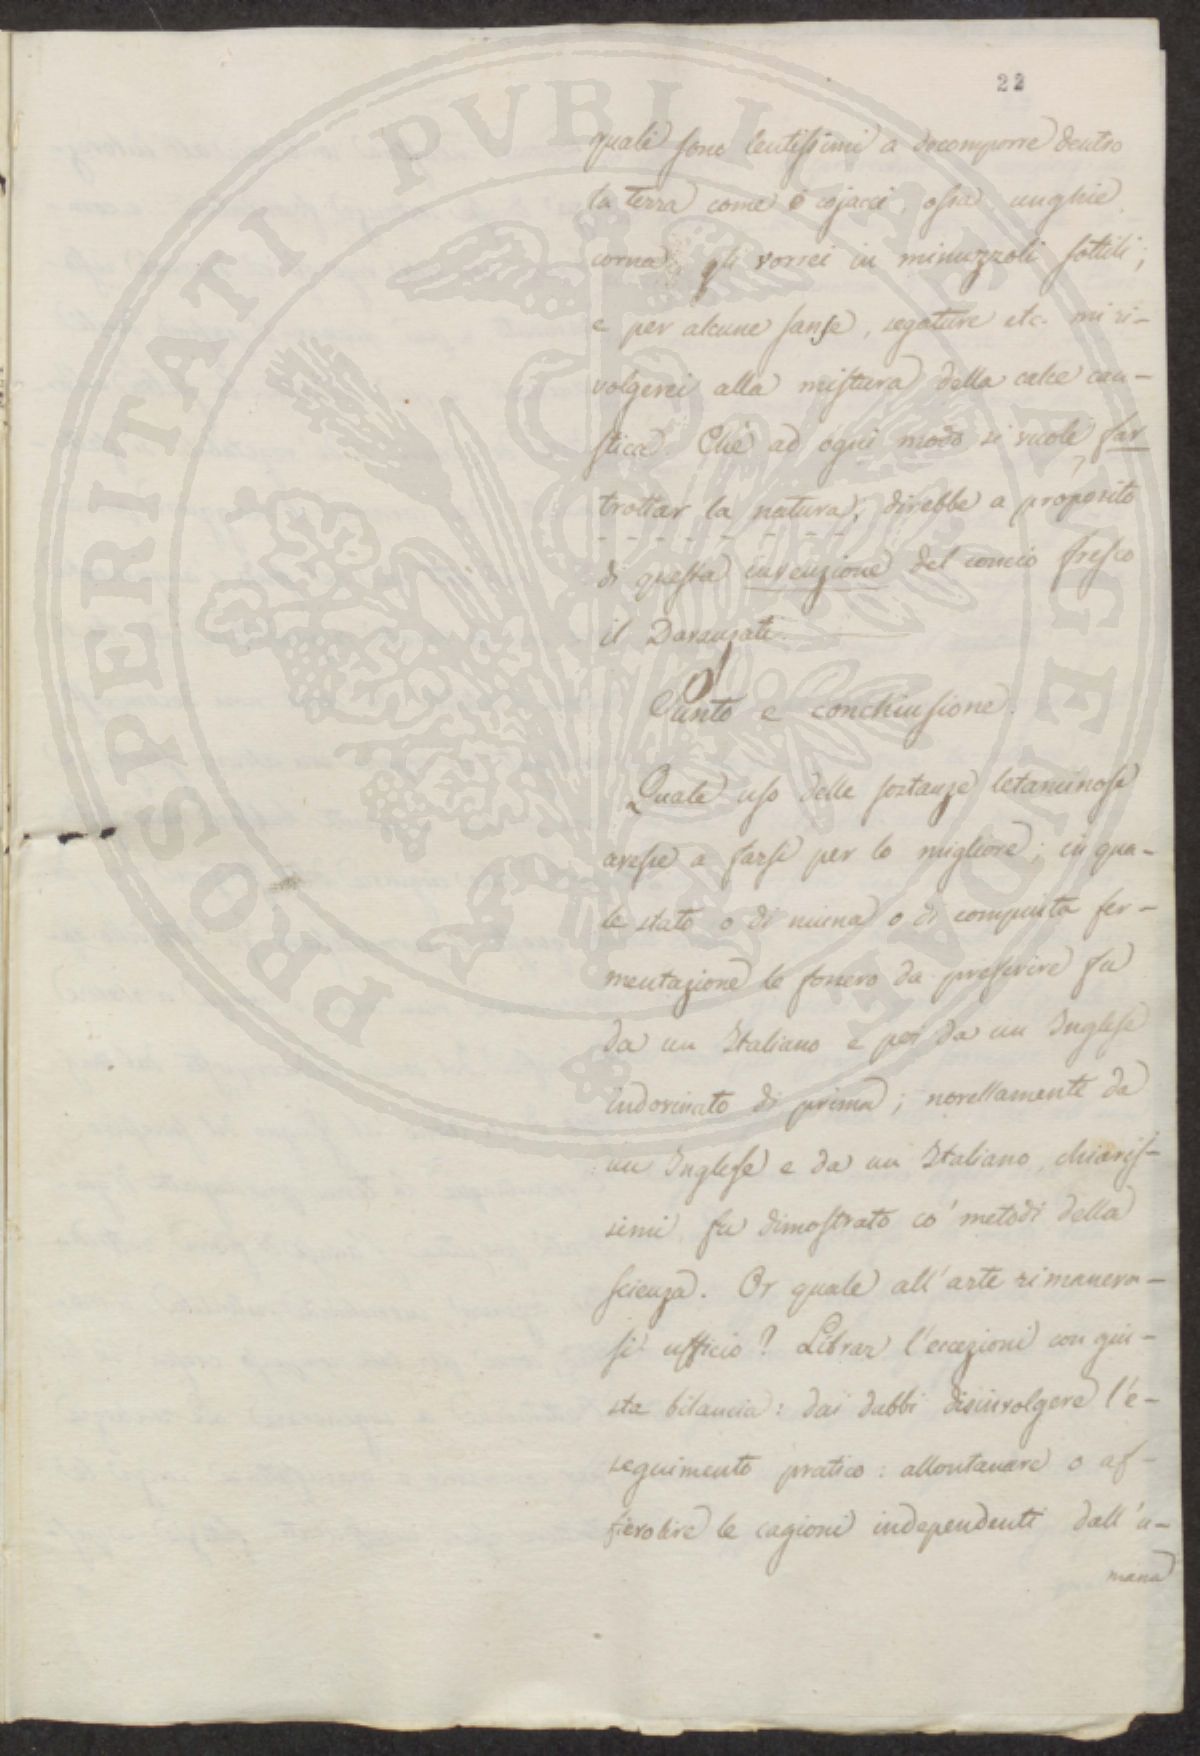 22
quali sono lentissimi a decomporre dentro
la terra come i cojacci, ossa, unghie,
corna, gli vorrei in minuzzoli sottili;
e per alcune sanse, segature etc. mi ri-
volgerei alla mistura della calce cau-
stica. Chè ad ogni modo si vuole, far
trottar la natura, direbbe a proposito
di questa invenzione del concio fresco
il Davanzati.
Punto e conchiusione.
Quale uso delle sostanze letaminose
avesse a farsi per lo migliore; in qua-
le stato o di niuna o di compiuta fer-
mentazione le fossero da preferire fu
da un Italiano e poi da un Inglese
indovinato di prima; novellamente da
un Inglese e da un Italiano, chiaris-
simi, fu dimostrato co' metodi della
scienza. Or quale all'arte rimaneva-
si ufficio? Librar l'eccezioni con giu-
sta bilancia: dai dubbi disinvolgere l'e-
seguimento pratico: allontanare o af-
fievolire le cagioni independenti dall'u-
mana
PROSPERITATI PVBLICAE AVGENDAE